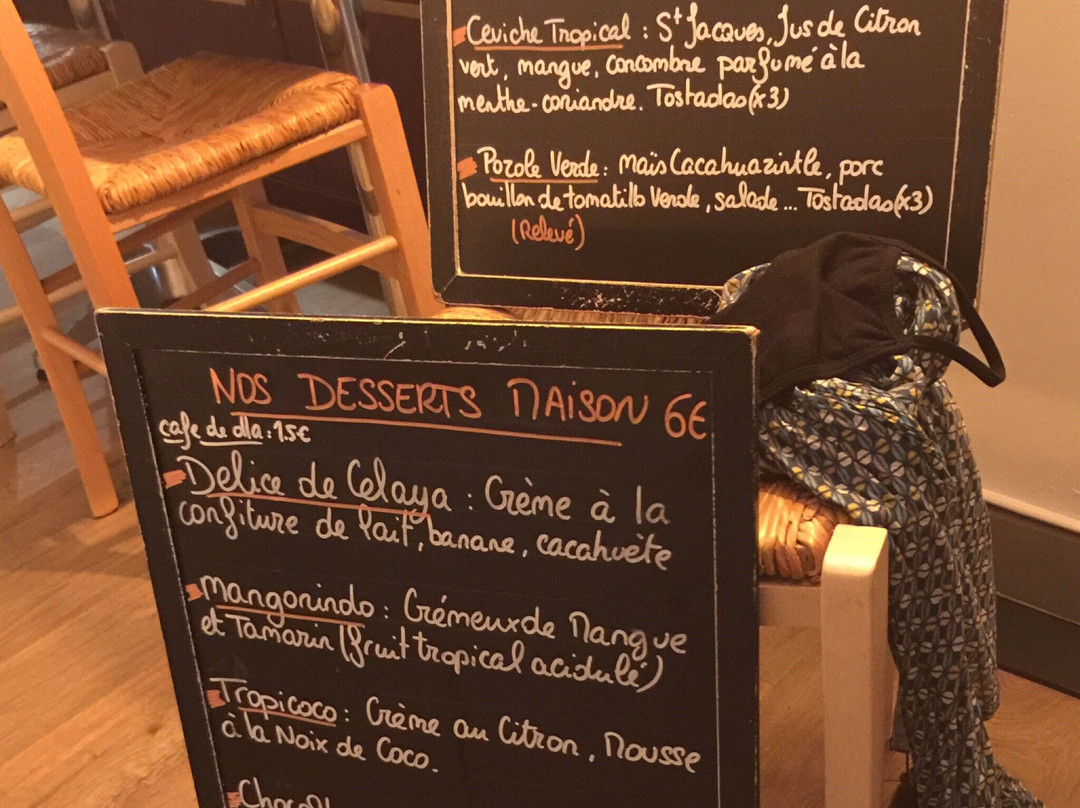 Ceviche Tropical : St Jacques, Jus de Citron
vert, mangue, concombre parfumé à la
menthe-coriandre. Tostadas (x3)
Pozole Verde : maïs Cacahuazintle, porc
bouillon de tomatillo Verde, salade... Tostadas (x3)
(Relevé)
NOS DESSERTS MAISON 6€
cafe de olla : 1.5€
Delice de Celaya : Crème à la
confiture de lait, banane, cacahuète
Mangorindo : Crémeux de Mangue
et Tamarin (fruit tropical acidulé)
Tropicoco : Crème au Citron, Mousse
à la Noix de Coco.